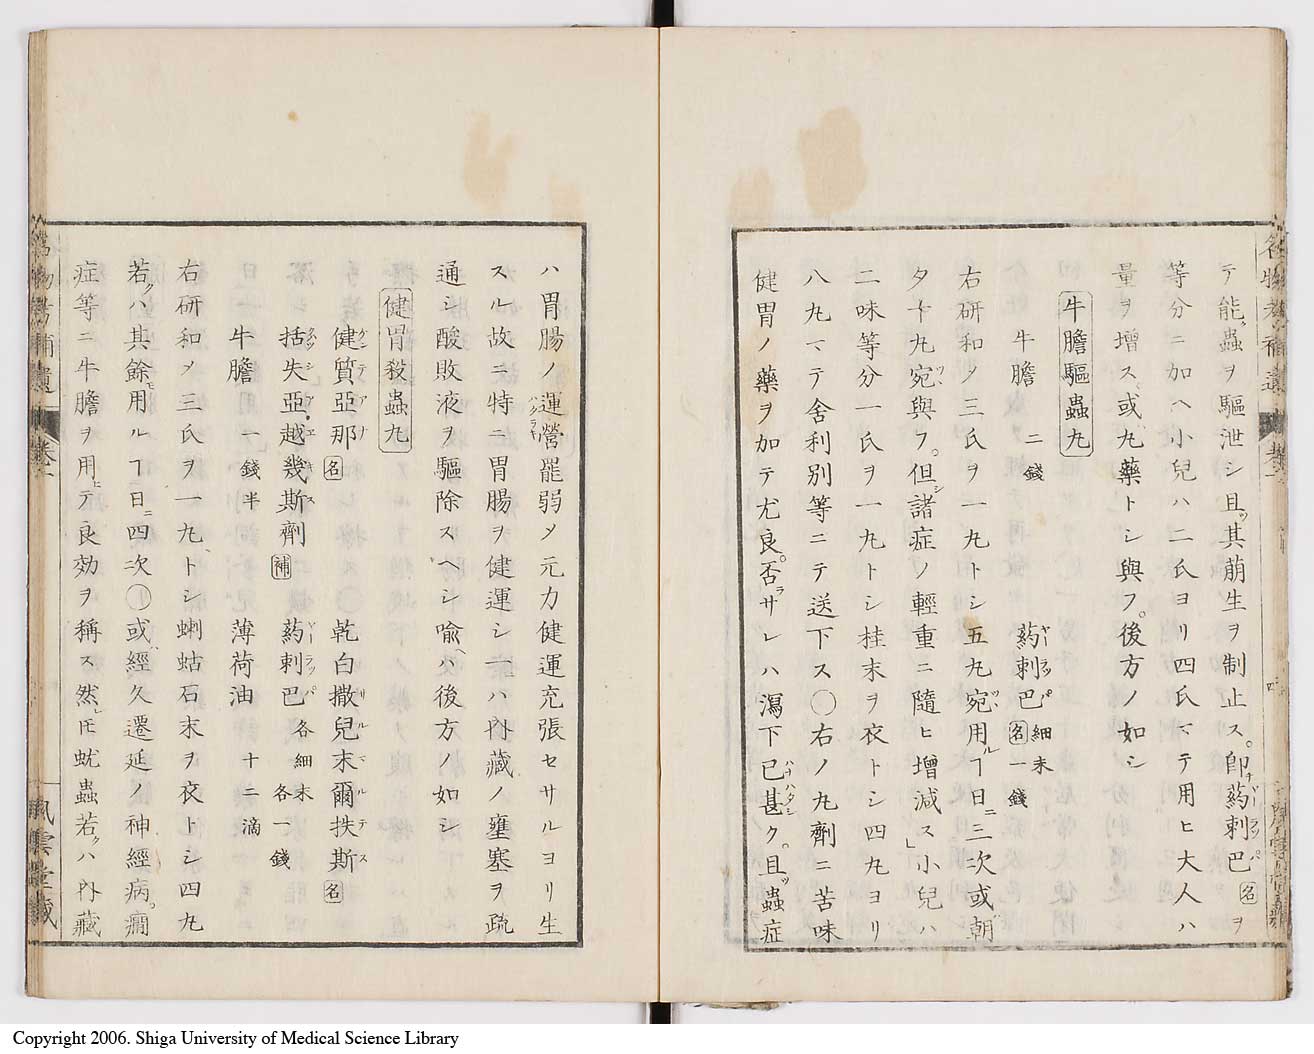 テ能ク蟲ヲ驅泄シ且ツ其萠生ヲ制止ス。卽チ葯剌巴名ヲ
等分ニ加ヘ小兒ハ二氏ヨリ四氏マテ用ヒ大人ハ
量ヲ增ス或ハ丸藥トシ與フ。後方ノ如シ
牛膽驅蟲丸
牛膽 二錢 葯剌巴名 細末一錢
右研和メ三氏ヲ一丸トシ五丸宛用ルヿ日ニ三次或ハ朝
夕十丸宛與フ。但シ諸症ノ輕重ニ隨ヒ增減ス」小兒ハ
二味等分一氏ヲ一丸トシ桂末ヲ衣トシ四丸ヨリ
八丸マテ舍利別等ニテ送下ス〇右ノ丸劑ニ苦味
健胃ノ藥ヲ加テ尤良。否ラサレハ瀉下已甚ク。且ツ蟲症
ハ胃腸ノ運營罷弱メ元力健運充張セサルヨリ生
スル故ニ特ニ胃腸ヲ健運シ一ハ內藏ノ壅塞ヲ疏
通シ酸敗液ヲ驅除スヘシ喩ヘハ後方ノ如シ
健胃殺蟲丸
健質亞那名 乾白撒兒末爾扶斯名
括失亞越幾斯劑補 葯剌巴 各細末各一錢
牛膽 一錢半 薄荷油 十二滴
右研和メ三氏ヲ一丸トシ蜊蛄石末ヲ衣トシ四丸
若クハ其餘モ用ルヿ日ニ四次〇或ハ經久遷延ノ神經病。癎
症等ニ牛膽ヲ用ヒテ良効ヲ稱ス然レ𪜈蚘蟲若クハ內藏
名物考補遺
卷
風雲堂藏
Copyright 2006. Shiga University of Medical Science Library